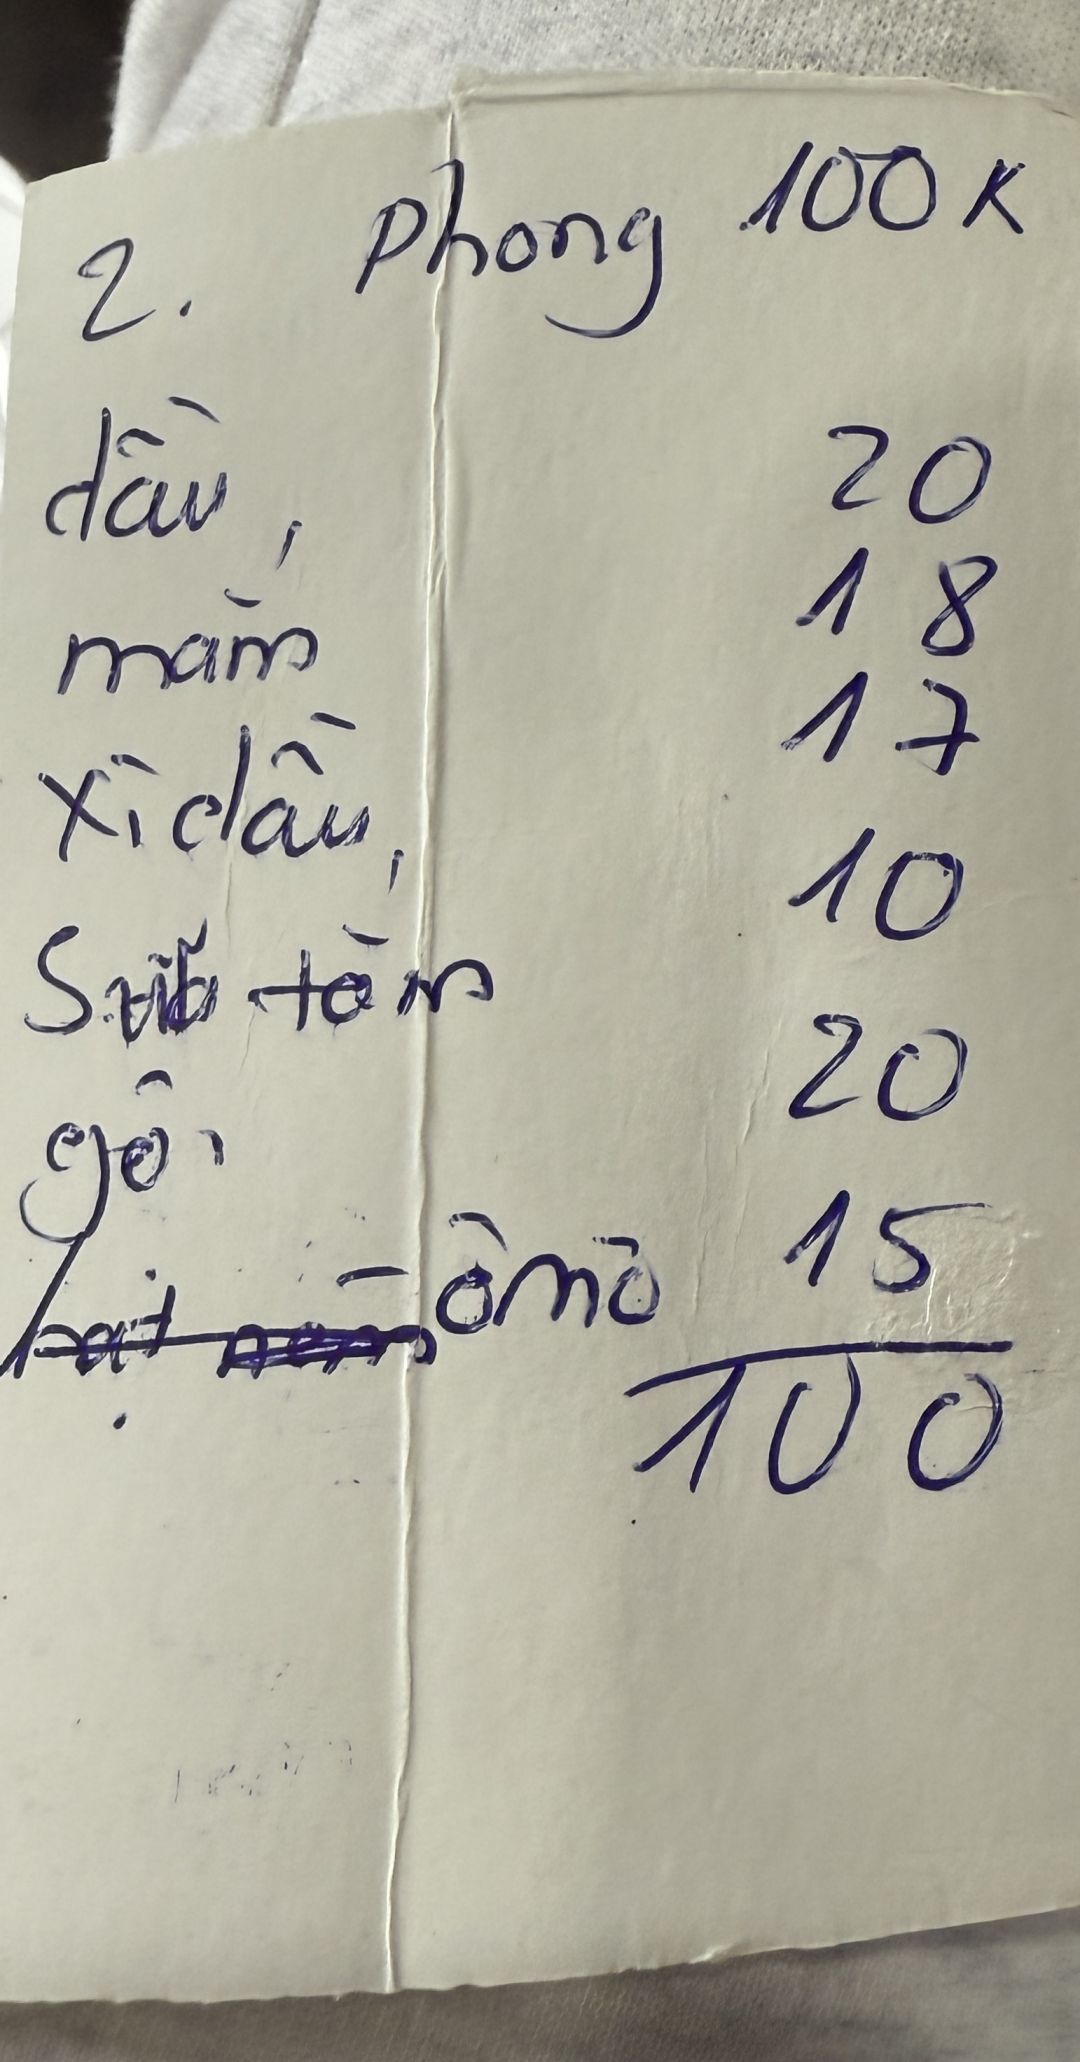 2. Phong 100K
dầu, 20
mắm 18
xì dầu, 17
Sữa tắm 10
gội 20
- ômô 15
100